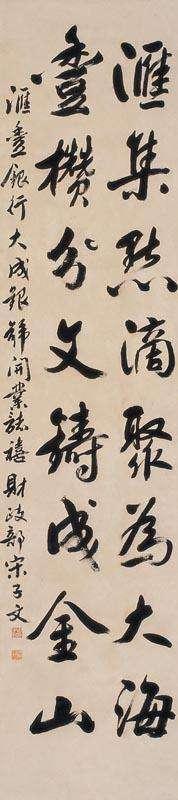 滙集點滴聚為大海
壹櫕分文鑄成金山
滙壹銀行大成銀號開業誌禧財政部宋子文